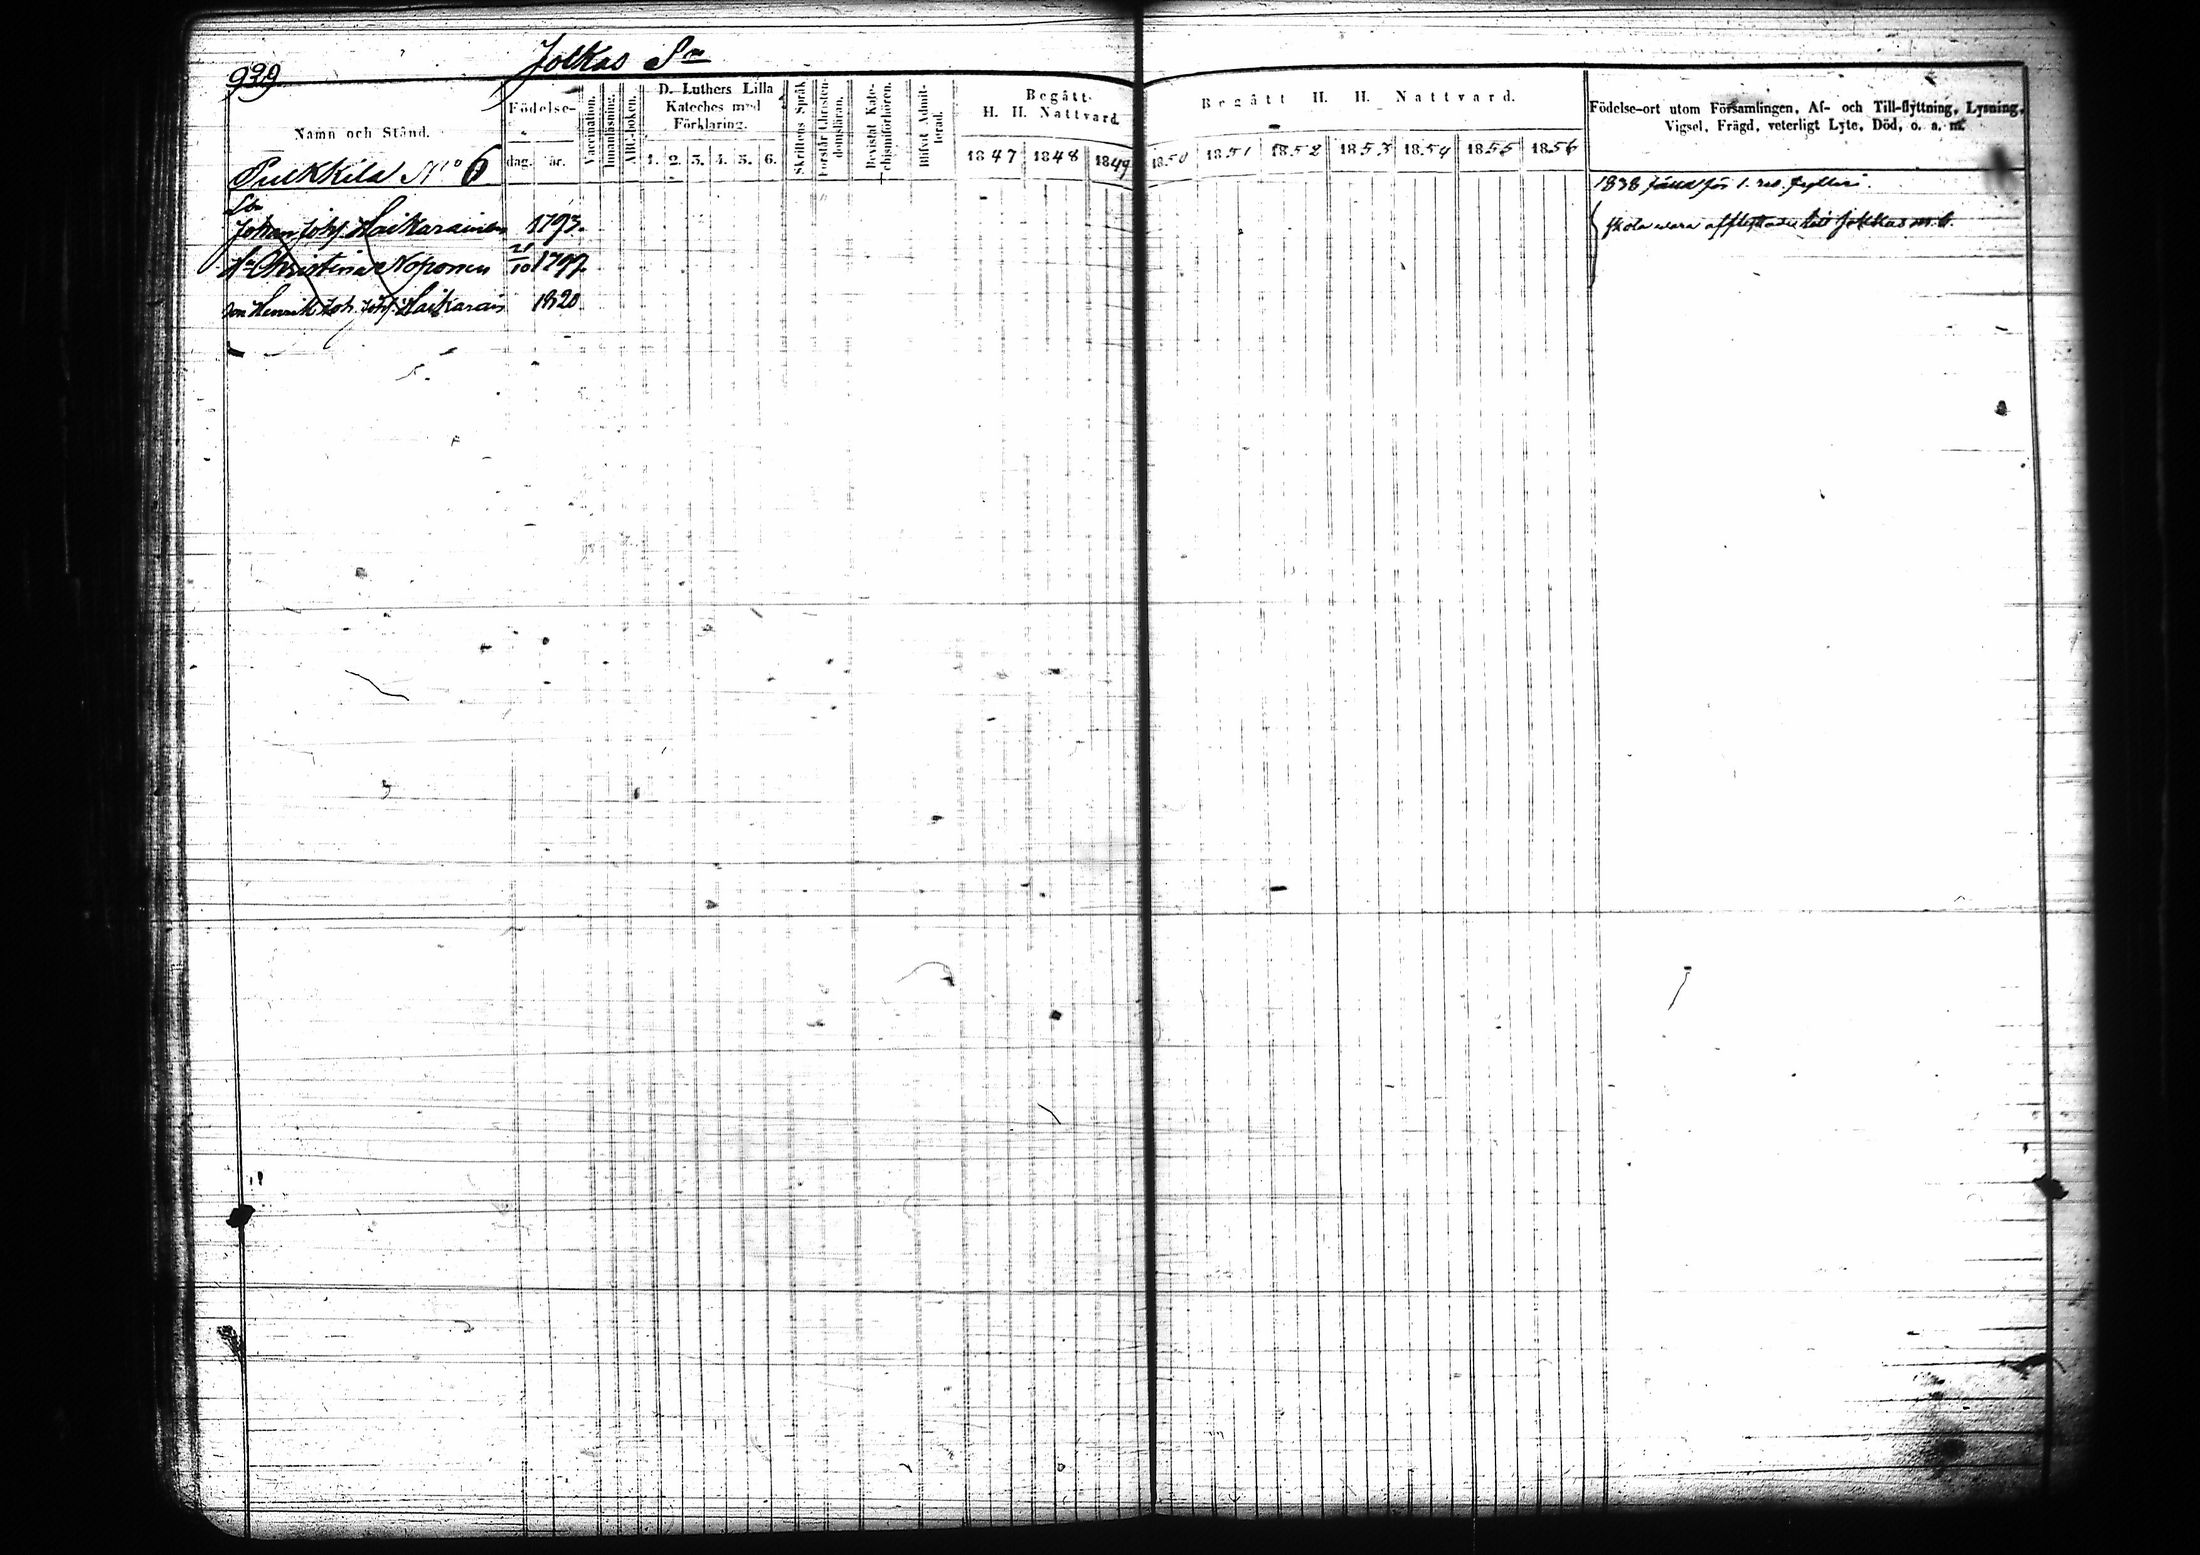 939
Jolkas Sn
Namn och Stånd.
Födelse-
dag. år.
Vaccination.
Innanläsning.
ABC-boken.
D. Luthers Lilla
Kateches med
Förklaring.
1. 2. 3. 4. 5. 6.
Skriftens Språk
Förstår Christen-
domsläran.
Bevistat Kate-
chismiförhören.
Blifvit Admit-
terad.
Begått
H. H. Nattvard.
1847 1848 1849
Begått H. H. Nattvard.
1850 1851 1852 1853 1854 1855 1856
Födelse-ort utom Församlingen, Af- och Till-flyttning, Lysning,
Vigsel, Frägd, veterligt Lyte, Död, o. a. m.
Pulkkila No 6
1838 för 1.
Johan Joh. Haikarainen 1793.
skola vara afflyttade till Jokkas
Hu Christina Noponen 21/10 1797.
son Henrik Joh. Joh. Haikarain 1820